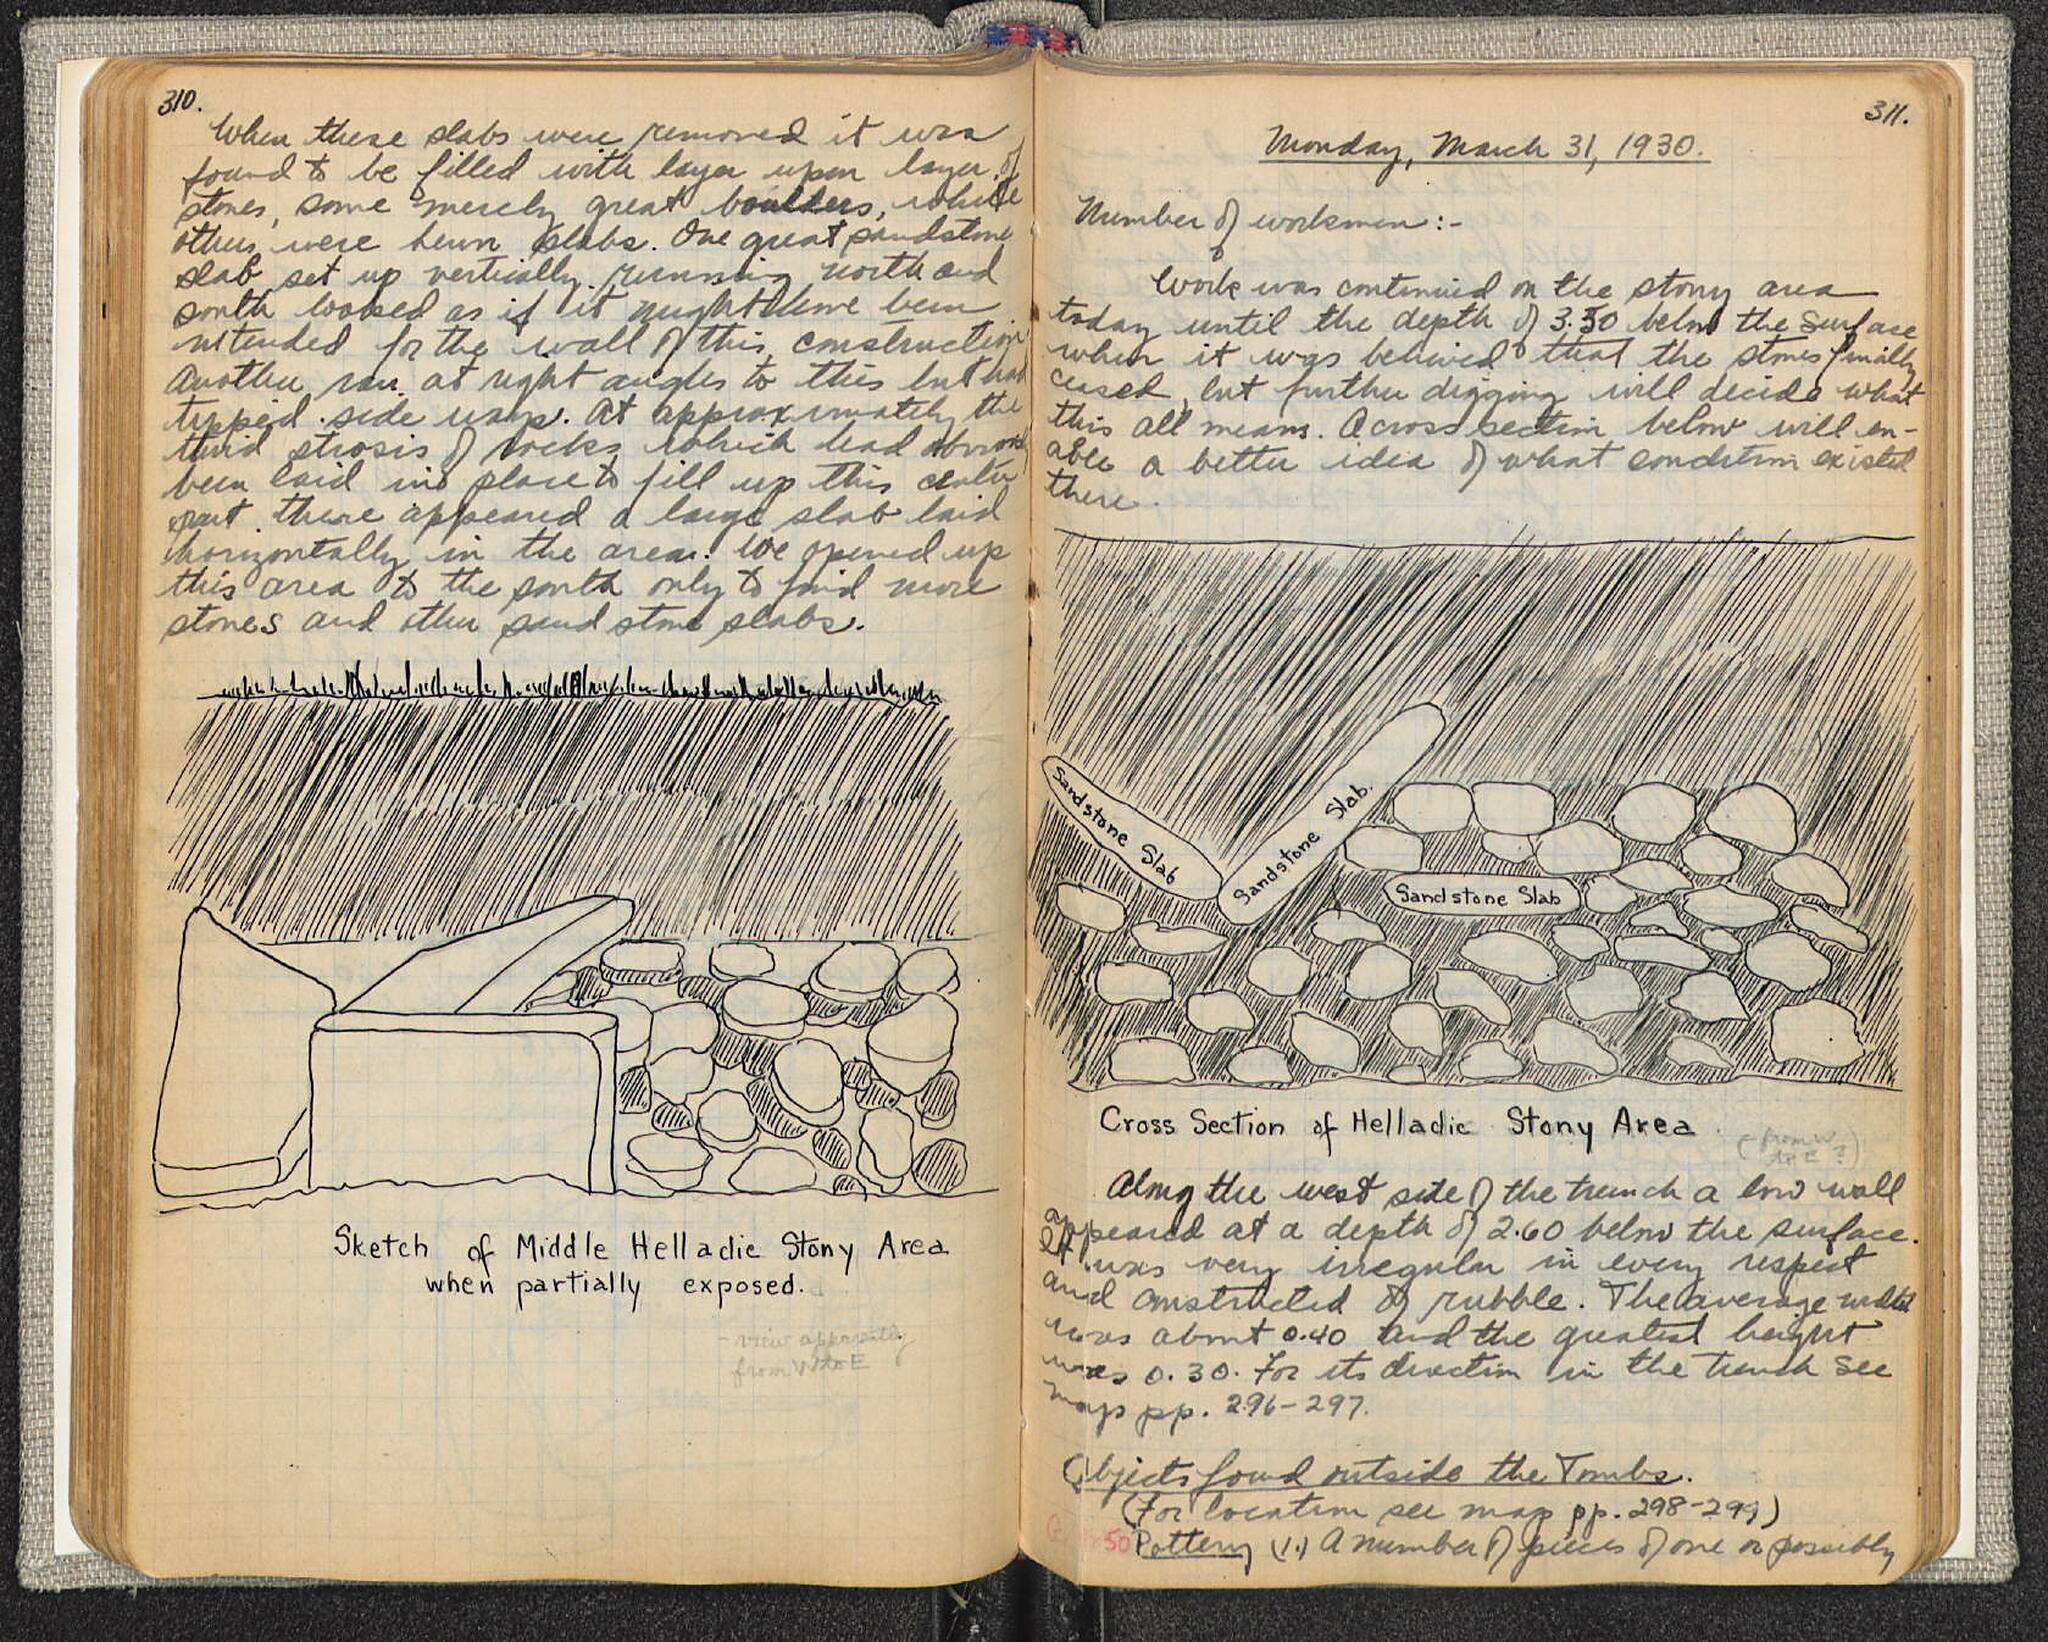 310.
When these slabs were removed it was
found to be filled with layer upon layer of
stones, some merely great boulders, while
others were hewn slabs. One great sandstone
slab set up vertically running north and
south looked as if it might have been
intended for the wall of this construction.
Another ran at right angles to this but had
tipped side ways. At approximately the
third strosis of rocks which had obviously
been laid in place to fill up this center
part there appeared a large slab laid
horizontally in the area. We opened up
this area to the south only to find more
stones and other sand stone slabs.
Sketch of Middle Helladic Stony Area
when partially exposed.
- view apparently
from W to E
311.
Monday, March 31, 1930.
Number of workmen:-
Work was continued on the stony area
today until the depth of 3.50 below the surface
when it was believed that the stones finally
ceased, but further digging will decide what
this all means. A cross section below will en-
able a better idea of what condition existed
there.
Sandstone Slab
Sandstone Slab.
Sandstone Slab
Cross Section of Helladic Stony Area
(from W
to E?)
Along the west side of the trench a low wall
appeared at a depth of 2.60 below the surface.
It was very irregular in every respect
and constructed of rubble. The average width
was about 0.40 and the greatest height
was 0.30. For its direction in the trench see
map pp. 296-297.
Objects found outside the Tombs.
(For location see map pp. 298-299)
50 Pottery (1.) A number of pieces of one or possibly